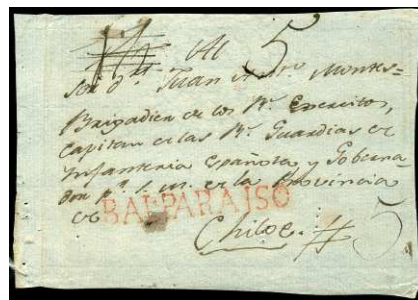 Al 5
Sor. Dn. Juan Anto. Montes=
Brigadier de los Rs. Exercitos,
Capitan de las Rs. Guardias de
Infanteria Española, y Goberna-
dor pr. S. M. de la Provincia
de
BALPARAISO
Chiloe. 5